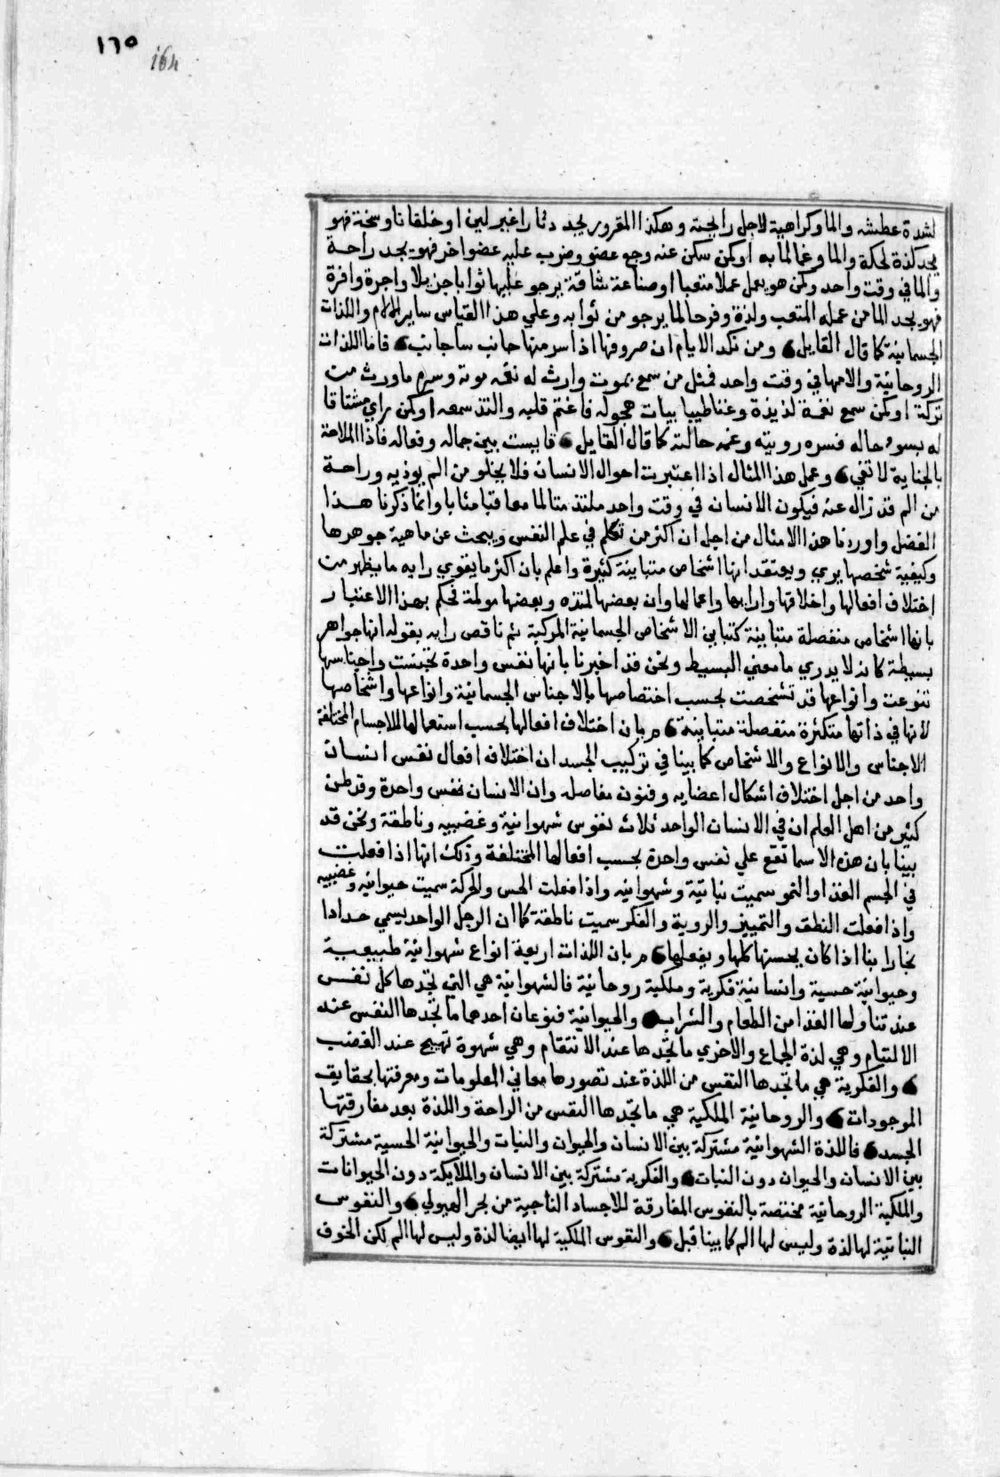 ١٦٥
164
لشدة عطشه والما وكراهية لاجل رايحته وهكذا المقرور يجد دثارا غير لين او خلقانا وسخة فهو
يجد كذة لحكة والما وغما لما به اوكمن سكن عنه وجع عضو وضرب عليه عضوا خر فهو يجد راحة
والما في وقت واحد وكمن هو يعمل عملا متعبا او صناعة شاقة يرجو عليها ثوابا جزيلا واجرة وافرة
فهو يجد الما من عمله المتعب ولذة وفرحا لما يرجو من ثوابه وعلي هذا القياس ساير الالام واللذات
الجسمانية كما قال القايل ومن نكد الايام ان صروفها اذا سر منها جانب سا جانب فاما اللذات
الروحانية والامها في وقت واحد فمثل من سمع بموت وارث له نغمه موته وسره ما ورث من
تركة اوكمن سمع نغمة لذيذة وغنا طيبا بيات هجوله فاغتم قلبه والتذ سمعه اوكمن راي مشتاقا
له بسوء حاله فسره رويته وغمه حالته كما قال القايل قايست بين جماله وفعاله فاذا الملاحة
بالجناية لا تفي وعمل هذا المثال اذا اعتبرت احوال الانسان فلا يخلو من الم يوذيه وراحة
من الم قد زال عنه فيكون الانسان في وقت واحد ملتذ متالما معاقبا مثابا وانما ذكرنا هذا
الفصل واوردنا هذا الامثال من اجل ان اكثر من تكلم في علم النفس ويبحث عن ماهية جوهرها
وكيفية شخصها يري ويعتقد انها اشخاص متباينة كثيرة واعلم بان اكثر ما يقوي رايه ما يظهر من
اختلاف افعالها واخلاقها وارايها واعمالها وان بعضها ملتذه وبعضها مولمة فحكم بهذا الاعتبار
بانها اشخاص منفصلة متباينة كتباين الاشخاص الجسمانية المركبة ثم ناقص رايه بقوله انها جواهر
بسيطة كانه لا يدري ما معني البسيط ونحن قد اخبرنا بانها نفس واحدة تجنست واجناسها
تنوعت وانواعها قد تشخصت بحسب اختصاصها بالاجناس الجسمانية وانواعها واشخاصها
لانها في ذاتها متكثرة منفصلة متباينة مربان اختلاف افعالها بحسب استعمالها للاجسام المختلفة
الاجناس والانواع والاشخاص كما بينا في تركيب الجسد ان اختلاف افعال نفس انسان
واحد من اجل اختلاف اشكال اعضايه وفنون مفاصله وان الانسان نفس واحدة وقد ظن
كثير من اهل العلم ان في الانسان الواحد ثلاث نفوس شهوانية وغضبيه وناطقة ونحن قد
بينا بان هذه الاسما تقع علي نفس واحدة بحسب افعالها المختلفة وذلك انها اذا فعلت
في الجسم الغذا والنمو سميت نباتية وشهوانيه واذا فعلت الحس والحركة سميت حيوانيه وغضبيه
واذا فعلت النطق والتمييز والروية والفكر سميت ناطقة كما ان الرجل الواحد يسمي حدادا
نجارا بنا اذا كان يحسنها كلها ويفعلها مربان اللذات اربعة انواع شهوانية طبيعية
وحيوانية حسية وانسانية فكرية وملكية روحانية فالشهوانية هي التي تجدها كل نفس
عند تناولها الغذا من الطعام والشراب والحيوانية فنوعان احدهما ما تجدها النفس عند
الالتيام وهي لذة الجماع والاخري ما تجدها عند الانتقام وهي شهوة تهيج عند الغضب
والفكرية هي ما تجدها النفس من اللذة عند تصورها معاني المعلومات ومعرفتها بحقايق
الموجودات والروحانية الملكية هي ما تجدها النفس من الراحة واللذة بعد مفارقتها
الجسد فاللذة الشهوانية مشتركة بين الانسان والحيوان والنبات والحيوانية الحسية مشتركة
بين الانسان والحيوان دون النبات والفكرية مشتركة بين الانسان والملايكة دون الحيوانات
والملكية الروحانية مختصة بالنفوس المفارقة للاجساد الناجية من بحر الهيولي والنفوس
النباتية لها لذة وليس لها الم كما بينا قبل والنفوس الملكية لها ايضا لذة وليس لها الم لكن الخوف